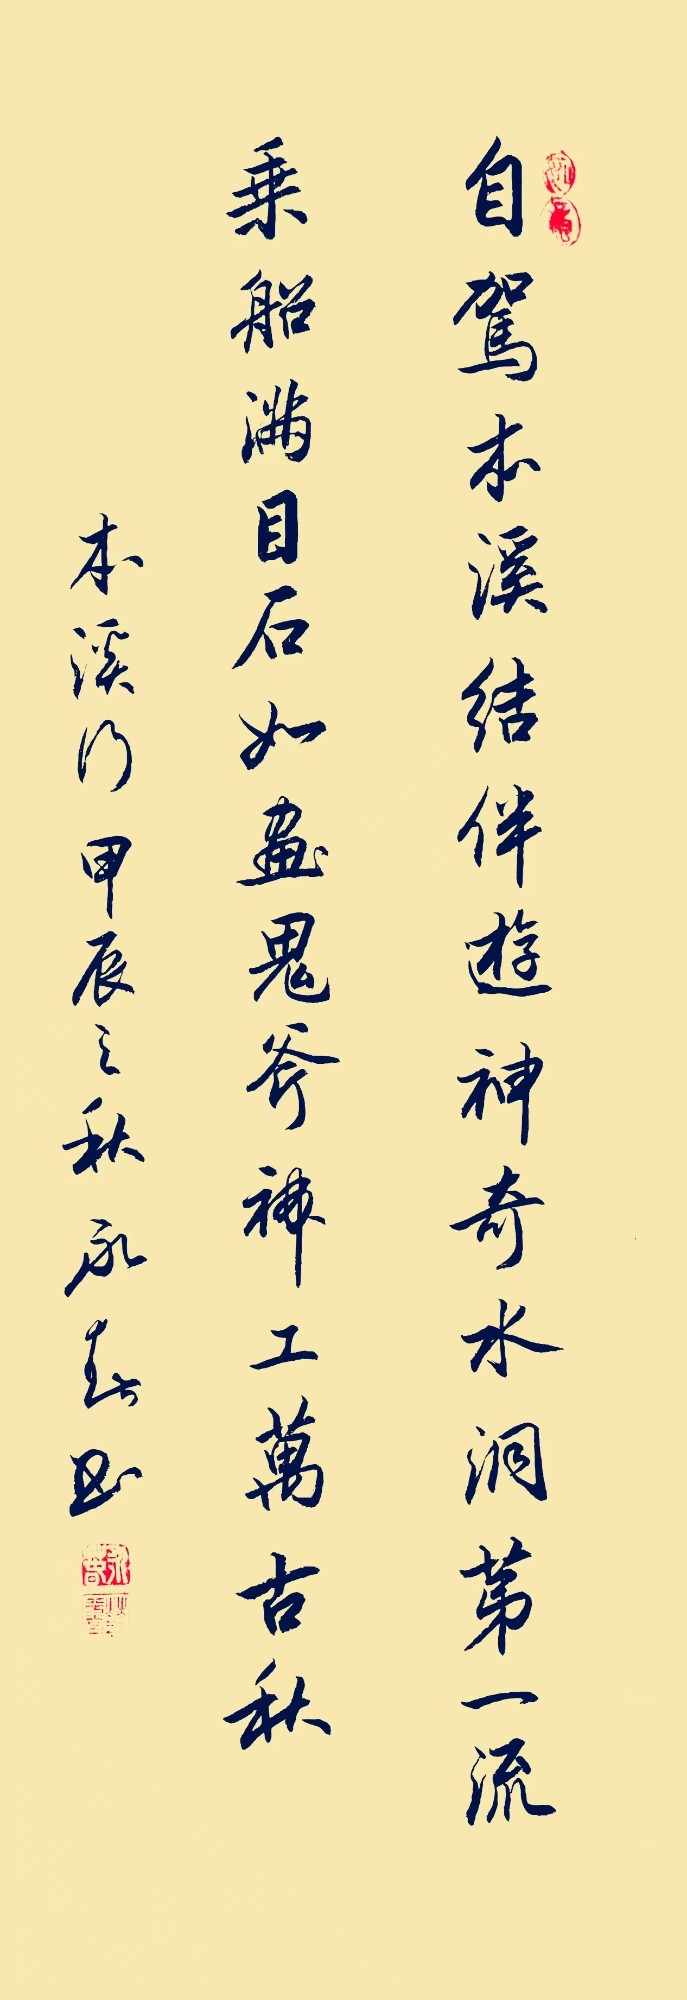 自駕本溪結伴遊神奇水洞第一流
乘船满目石如畫鬼斧神工萬古秋
本溪行甲辰之秋永春书